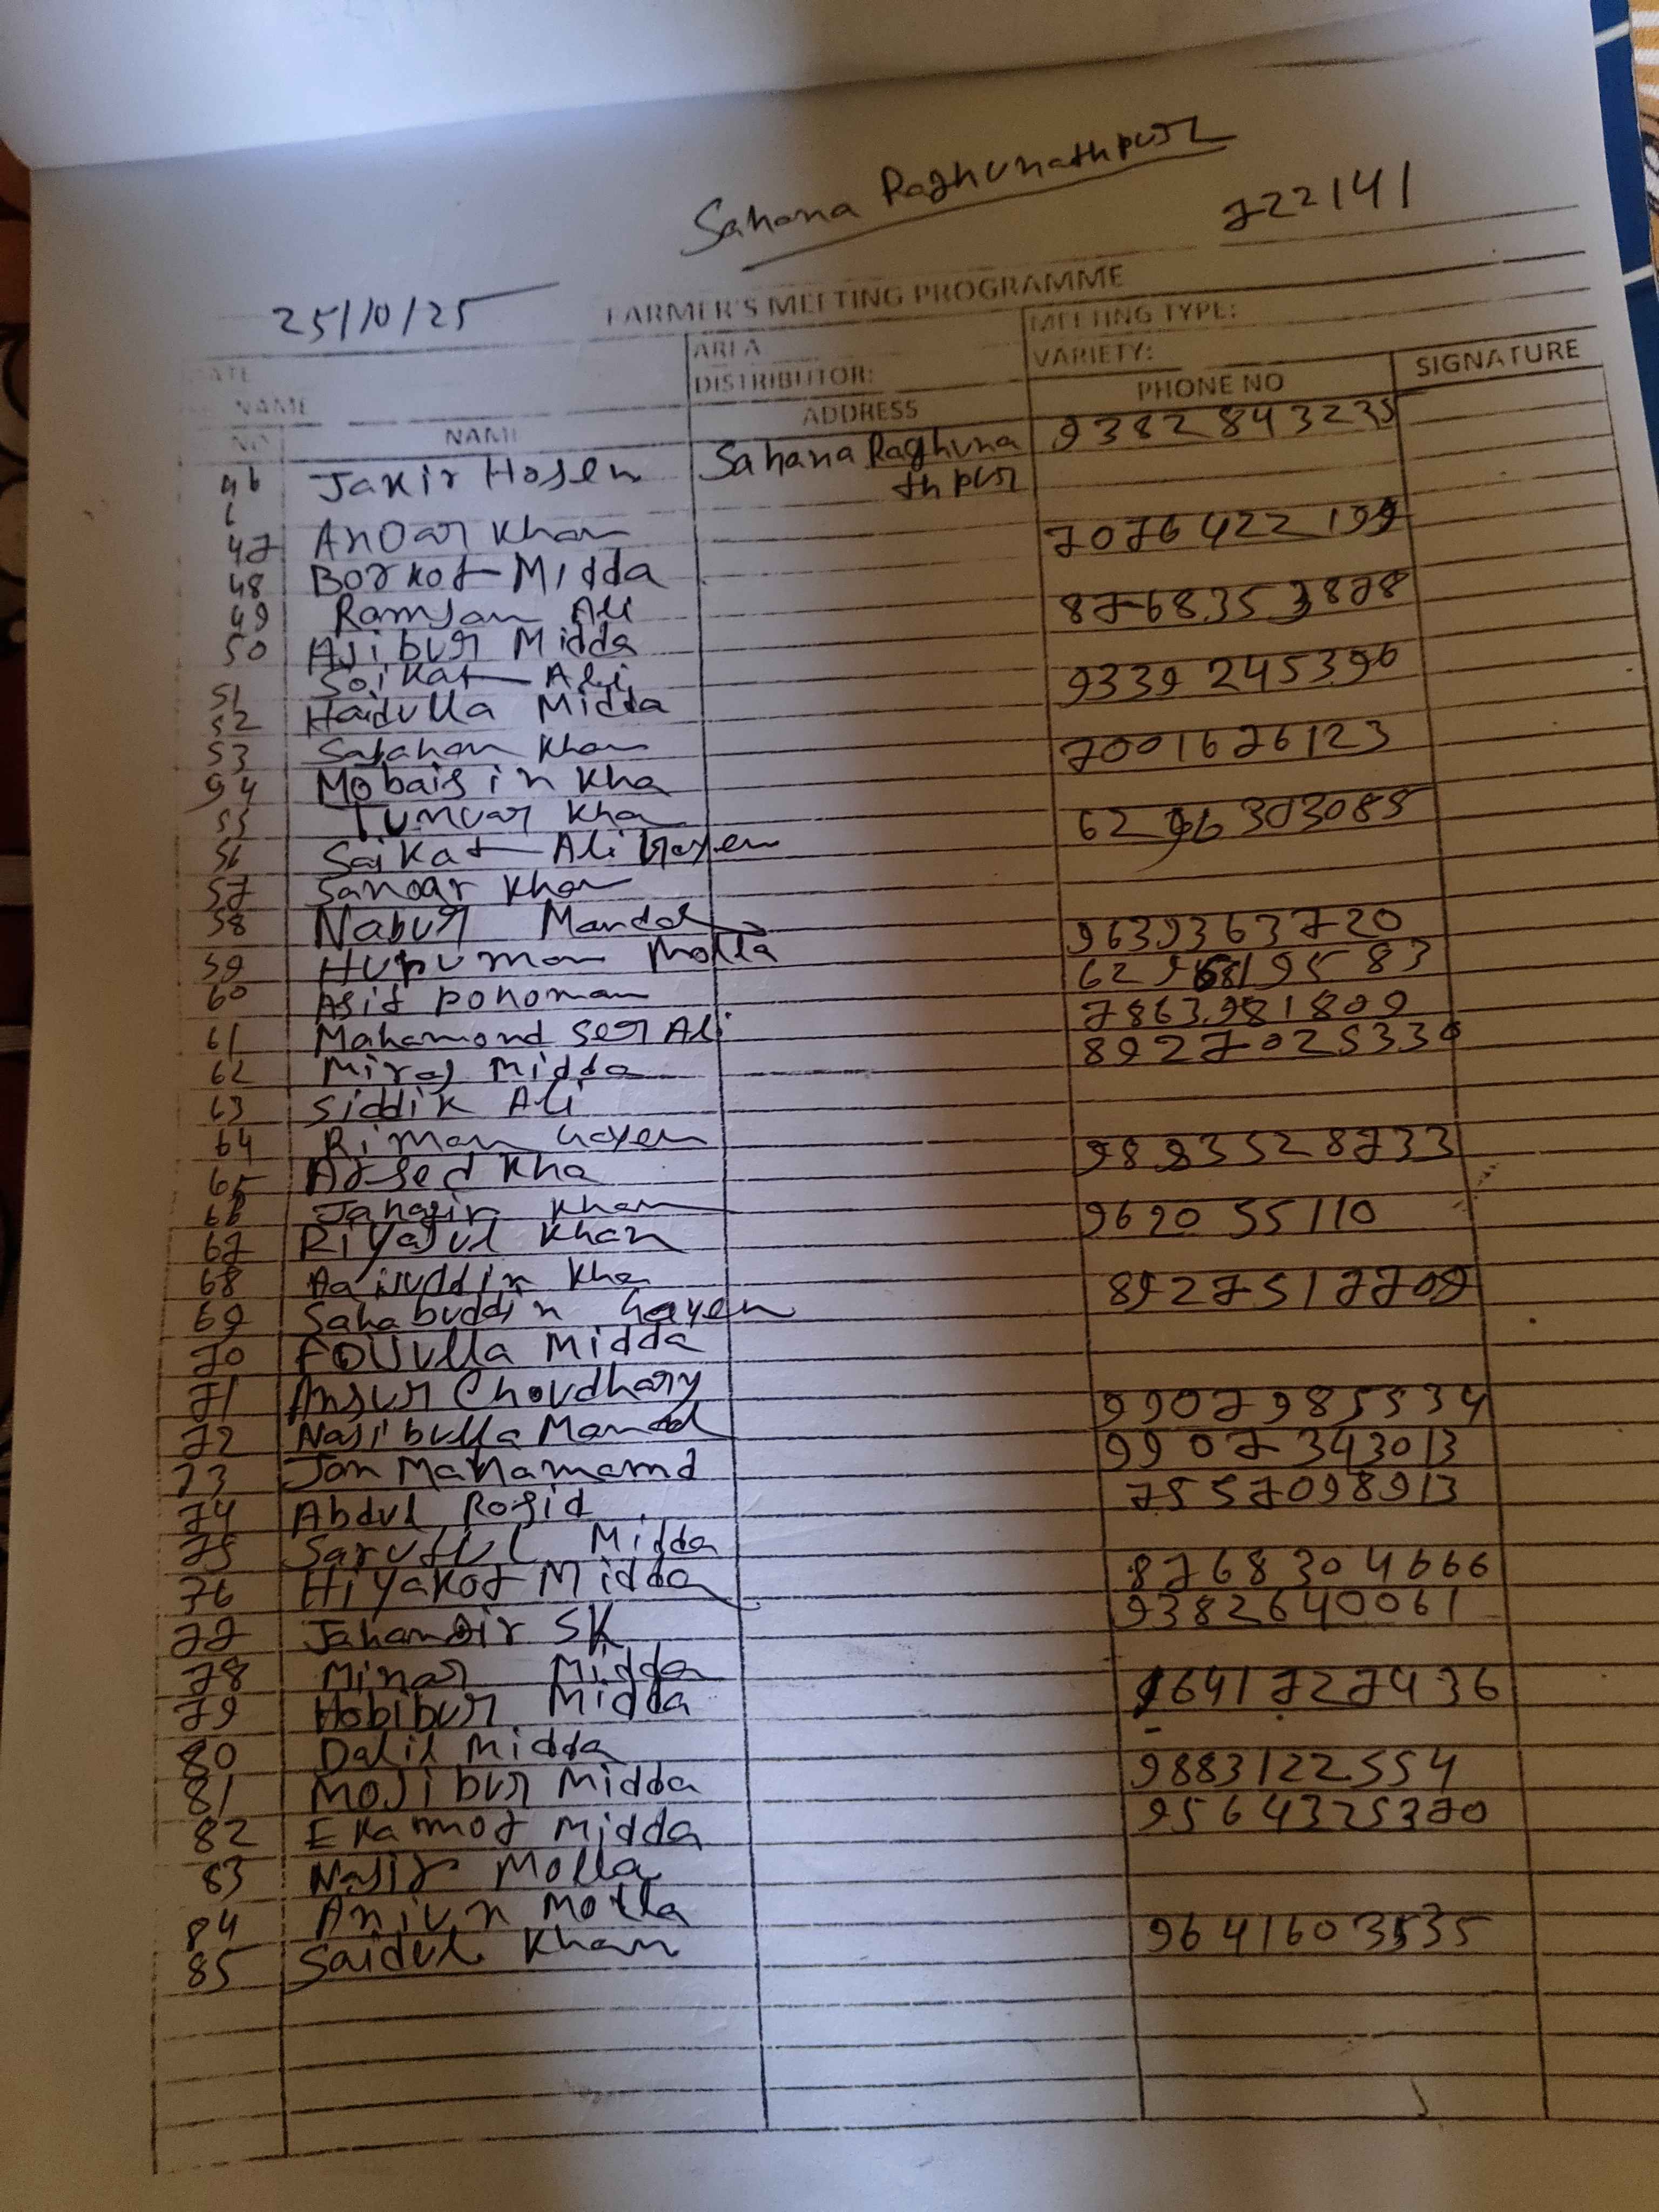 Sahana Raghunathpur
722141
25/10/25
FARMER'S MEETING PROGRAMME
DATE AREA MEETING TYPE:
NAME DISTRIBUTOR: VARIETY:
NO NAME ADDRESS PHONE NO SIGNATURE
46 Jakir Hosen Sahana Raghuna 9382843235
thpur
47 Anoar Khan 7076422199
48 Borkot Midda
49 Ramjan Ali 8768353878
50 Ajibur Midda
51 Soikat Ali 9339245396
52 Haidulla Midda
53 Sajahan Khan 7001676123
54 Mobaisin Kha
55 Tunuar Kha 6296303085
56 Saikat Ali Gayen
57 Sanoar Khan
58 Nabur Mandal 9639363720
59 Hupuman Molla
60 Asif ponoman 7863981809
61 Mahamond Ser Ali 8927025330
62 Miraj Midda
63 Siddik Ali
64 Riman Gayen 9893528733
65 Arsed Kha
66 Jahagir Khan 962055110
67 Riyajul Khan
68 Aaijuddin Kha 8927517709
69 Sahabuddin Gayen
70 Foujulla Midda
71 Ansur Choudhary 9907985534
72 Najibulla Mamad 9907343013
73 Jan Mahamamd 7557098913
74 Abdul Rosid
75 Saruful Midda 8768304666
76 Hiyakot Midda 9382640061
77 Jahangir SK
78 Minar Midda 9641727436
79 Hobibur Midda
80 Dalil Midda 9883122554
81 Mojibur Midda 9564325370
82 Ekamot Midda
83 Najir Molla
84 Anjun Molla 9641603535
85 Saidul Khan